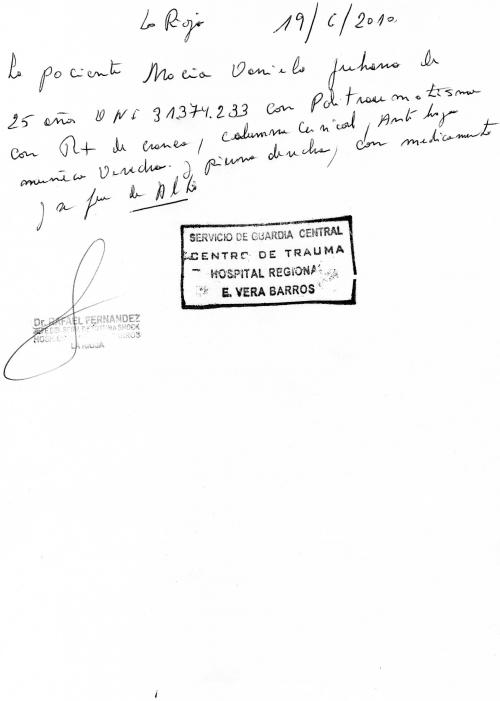 La Rioja 19/6/2010.
La paciente María Daniela de
25 años DNI 31374.233 con Politraumatismo
con Rx de craneo, columna cervical,
muñeca Derecha y pierna derecha, con medicamento
y se fue de Alta
SERVICIO DE GUARDIA CENTRAL
CENTRO DE TRAUMA
HOSPITAL REGIONAL
E. VERA BARROS
Dr. RAFAEL FERNANDEZ
LA RIOJA